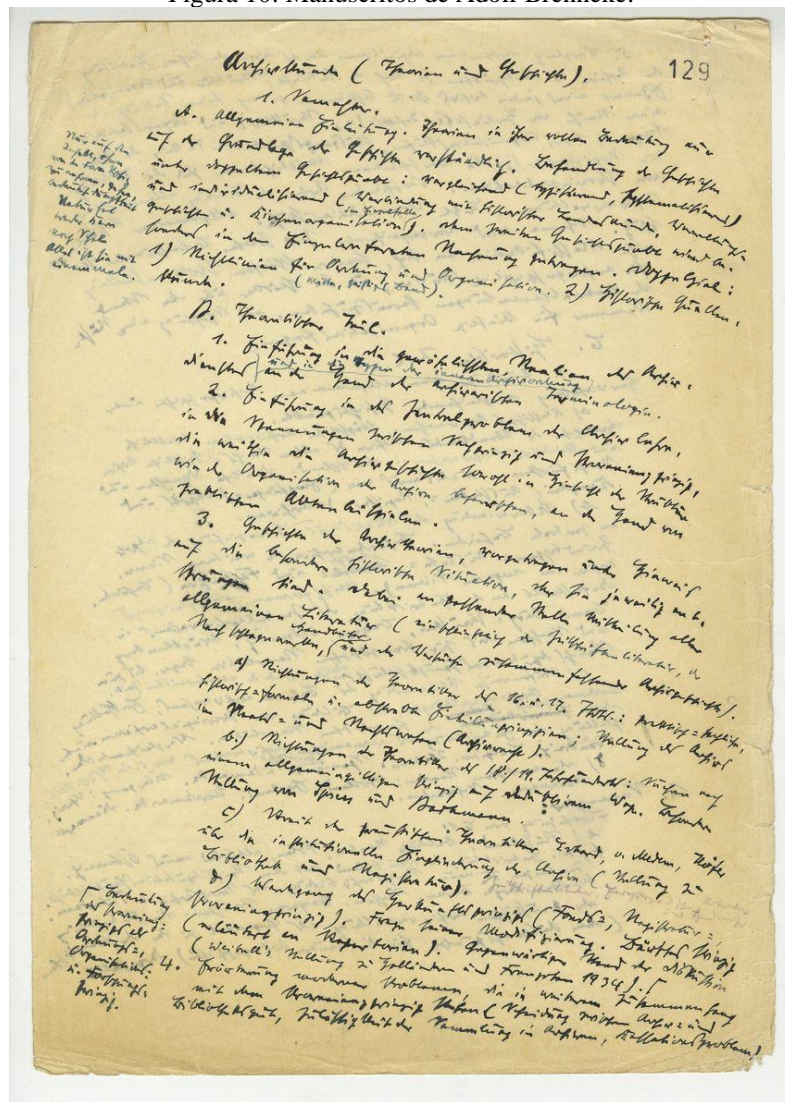 Figura 10: Manuscritos de Adolf Brenneke.
129
Archivkunde (Theorien und Geschichte).
1. Semester.
A. Allgemeine Einleitung. Theorien in ihrer vollen Bedeutung nur
auf der Grundlage der Geschichte verständlich. Behandlung der Geschichte
unter doppeltem Gesichtspunkt: vergleichend (typisierend, systematisierend)
und individualisierend (Verbindung mit historischer Landeskunde, Verwaltungs-
geschichte u. Archivorganisation). Dem zweiten Gesichtspunkt wird be-
sonders in den Rechnung getragen. Doppelziel:
1) Richtlinien für Ordnung und Organisation. 2) Historische Quellen-
kunde.
B. Theoretischer Teil.
1. Einführung in die gewöhnlichsten Realien des Archiv-
und in die Typen der inneren Archivordnung
dienstes an der Hand der archivarischen Terminologie.
2. Einführung in das Zentralproblem der Archivlehre,
in die Spannungen zwischen Sachprinzip und Provenienzprinzip,
die weithin die Archivgeschichte sowohl in Hinsicht der Struktur
wie der Organisation der Archive beherrschen, an der Hand von
praktischen Aktenbeispielen.
3. Geschichte der Archivtheorien, vorgetragen unter Hinweis
auf die besondere historische Situation, der sie jeweilig ent-
sprungen sind. Dabei an passender Stelle Mitteilung aller
allgemeinen Literatur (einschließlich der Zeitschriftenliteratur, der
Handbücher
Nachschlagewerke, und der Versuche zusammenfassender Archivgeschichte).
a) Richtungen der Theoretiker des 16. u. 17. Jhdts.: praktisch-sachliche,
historisch-formale u. abstrakte Einteilungsprinzipien; Stellung des Archivs
im Staats- und Rechtswesen (Archivrecht).
b) Richtungen der Theoretiker des 18./19. Jahrhunderts: Suchen nach
einem allgemeingültigen Prinzip auf deduktivem Wege. Besondere
Stellung von Spiess und Bachmann.
c) Streit der preußischen Theoretiker Erhard, v. Medem, Höfer
über die institutionelle Eingliederung der Archive (Stellung zu
Bibliothek und Registratur).
d) Werdegang des Herkunftsprinzips (Fonds-, Registratur-,
Provenienzprinzip). Frage seiner Modifizierung. Drittes Prinzip
(erläutert an Repertorien). Gegenwärtiger Stand der Diskussion
(Weibull's Stellung zu Holländern und Franzosen 1934).
4. Erörterung moderner Probleme, die in weiterem Zusammenhang
mit dem Provenienzprinzip stehen (Scheidung zwischen Archiv- und
Bibliotheksgut, Zulässigkeit der Sammlung in Archiven, Kassationsproblem)
Natur hat
weder Kern
noch Schale
Alles ist sie mit
einem male.
Bedeutung
des Provenienz-
prinzips als
Ordnungs-,
Organisations-
u. Forschungs-
prinzip.